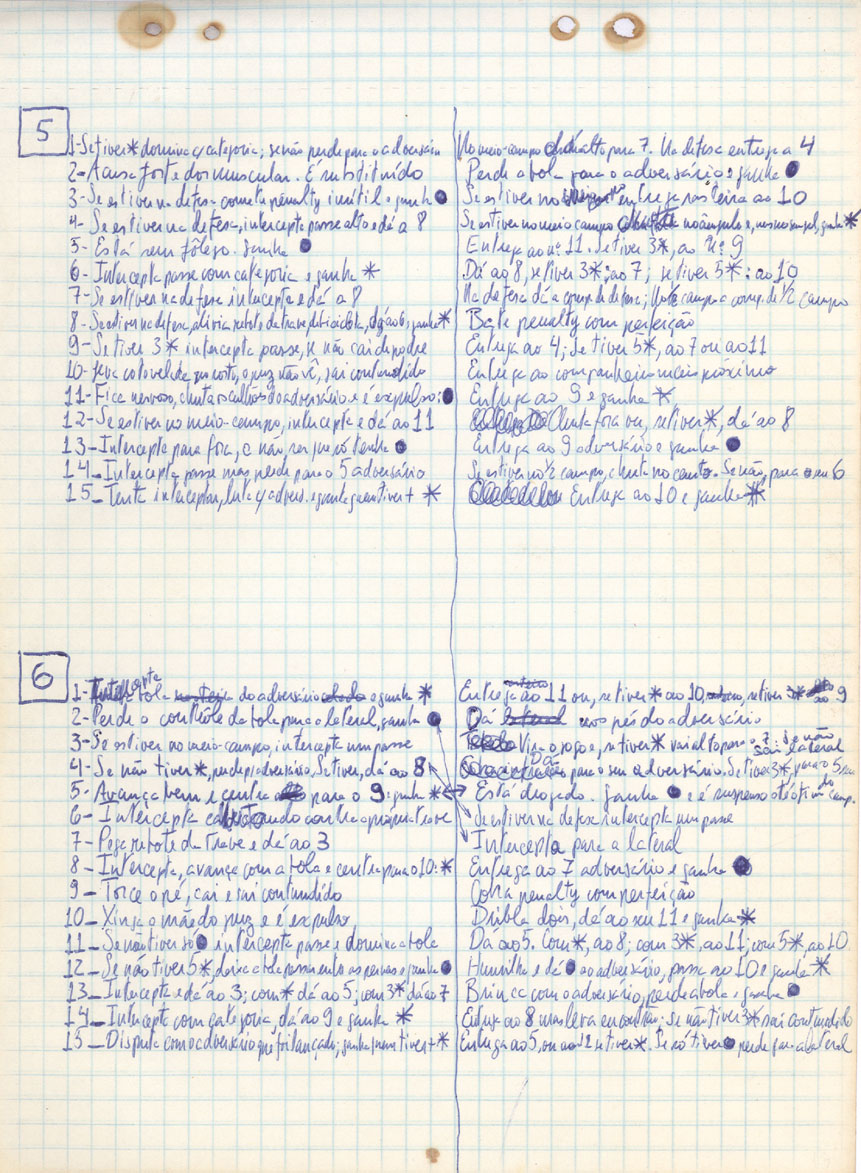 5
1-Se tiver * domina c/ categoria; se não perde para o adversário
2-Acusa forte dor muscular. É substituído
3-Se estiver na defesa comete penalty inútil e ganha ●
4-Se estiver na defesa, intercepta passe alto e dá a 8
5-Está sem fôlego. Ganha ●
6-Intercepta passe com categoria e ganha *
7-Se estiver na defesa intercepta e dá a 8
8-Se estiver na defesa, alivia rebote da trave, dá ao 6, ganha *
9-Se tiver 3* intercepta passe, se não cai de podre
10-Leva cotovelada, o juiz não vê, sai contundido
11-Fica nervoso, chuta os culhões do adversário e é expulso: ●
12-Se estiver no meio-campo, intercepta e dá ao 11
13-Intercepta para fora, a não ser que só tenha ●
14-Intercepta passe mas perde para o 5 adversário
15-Tenta interceptar, luta c/ advers. e ganha quem tiver + *
No meio-campo alta para 7. Na defesa entrega a 4
Perde a bola para o adversário e ganha ●
Se estiver no entrega rasteira ao 10
Se estiver no meio campo no ângulo e, mesmo sem gol, ganha *
Entrega ao nº 11. Se tiver 3*, ao nº 9
Dá ao 8, se tiver 3*: ao 7; se tiver 5*: ao 10
Na defesa dá a comp. de defesa; No ½ campo a comp. de ½ campo
Bate penalty com perfeição
Entrega ao 4; se tiver 5*, ao 7 ou ao 11
Entrega ao companheiro mais próximo
Entrega ao 9 e ganha *
Chuta fora ou, se tiver *, dá ao 8
Entrega ao 9 adversário e ganha ●
Se estiver no ½ campo, chuta no canto. Se não, para o seu 6
Entrega ao 10 e ganha *
6
1- bola do adversário e ganha *
2-Perde o contrôle da bola para a lateral, ganha ●
3-Se estiver no meio-campo, intercepta um passe
4-Se não tiver *, perde p/ adversário. Se tiver, dá ao 8
5-Avança bem e centra para o 9: ganha *
6-Intercepta contra a própria trave
7-Pega rebote da trave e dá ao 3
8-Intercepta, avança com a bola e centra para o 10: *
9-Torce o pé, cai e sai contundido
10-Xinga a mãe do juiz e é expulso
11-Se não tiver só ● intercepta passe e domina a bola
12-Se não tiver 5*, deixa a bola passar entre as pernas e ganha ●
13-Intercepta e dá ao 3; com * dá ao 5; com 3* dá ao 7
14-Intercepta com categoria, dá ao 9 e ganha *
15-Disputa com o adversário que foi lançado; ganha quem tiver + *
Entrega ao 11 ou, se tiver * ao 10, se tiver 3* ao 9
Dá nos pés do adversário
Vira o jogo e, se tiver * vai alto para o 7. Se não sai lateral
Dá para o seu adversário. Se tiver 3*, para o 5
Está drogado. Ganha ● e é suspenso até o fim do camp.
Se estiver na defesa intercepta um passe
Intercepta para a lateral
Entrega ao 7 adversário e ganha ●
Cobra penalty com perfeição
Dribla dois, dá ao seu 11 e ganha *
Dá ao 5. Com *, ao 8; com 3*, ao 11; com 5*, ao 10.
Humilha e dá ● ao adversário, passa ao 10 e ganha *
Brinca com o adversário, perde a bola e ganha ●
Entrega ao 8 mas leva encontrão: se não tiver 3* sai contundido
Entrega ao 5, ou ao 11 se tiver *. Se só tiver ● perde para a lateral